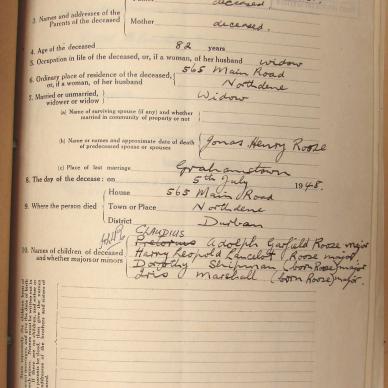 Father deceased
3. Names and addresses of the
Parents of the deceased
Mother deceased.
4. Age of the deceased 82 years
5. Occupation in life of the deceased, or, if a woman, of her husband widow
6. Ordinary place of residence of the deceased, 565 Main Road
or, if a woman, of her husband Northdene
7. Married or unmarried, Widow
widower or widow
(a) Name of surviving spouse (if any) and whether
married in community of property or not
(b) Name or names and approximate date of death Jonas Henry Roose
of predeceased spouse or spouses
(c) Place of last marriage Grahamstown
8. The day of the decease: on 5th July 1945.
House 565 Main Road
9. Where the person died Town or Place Northdene
District Durban
CLAUDIUS
10. Names of children of deceased Pretorius Adolph Garfield Roose major
and whether majors or minors Harry Leopold Lancelot Roose major
Dorothy (born Roose) major
Iris Marshall (born Roose) major